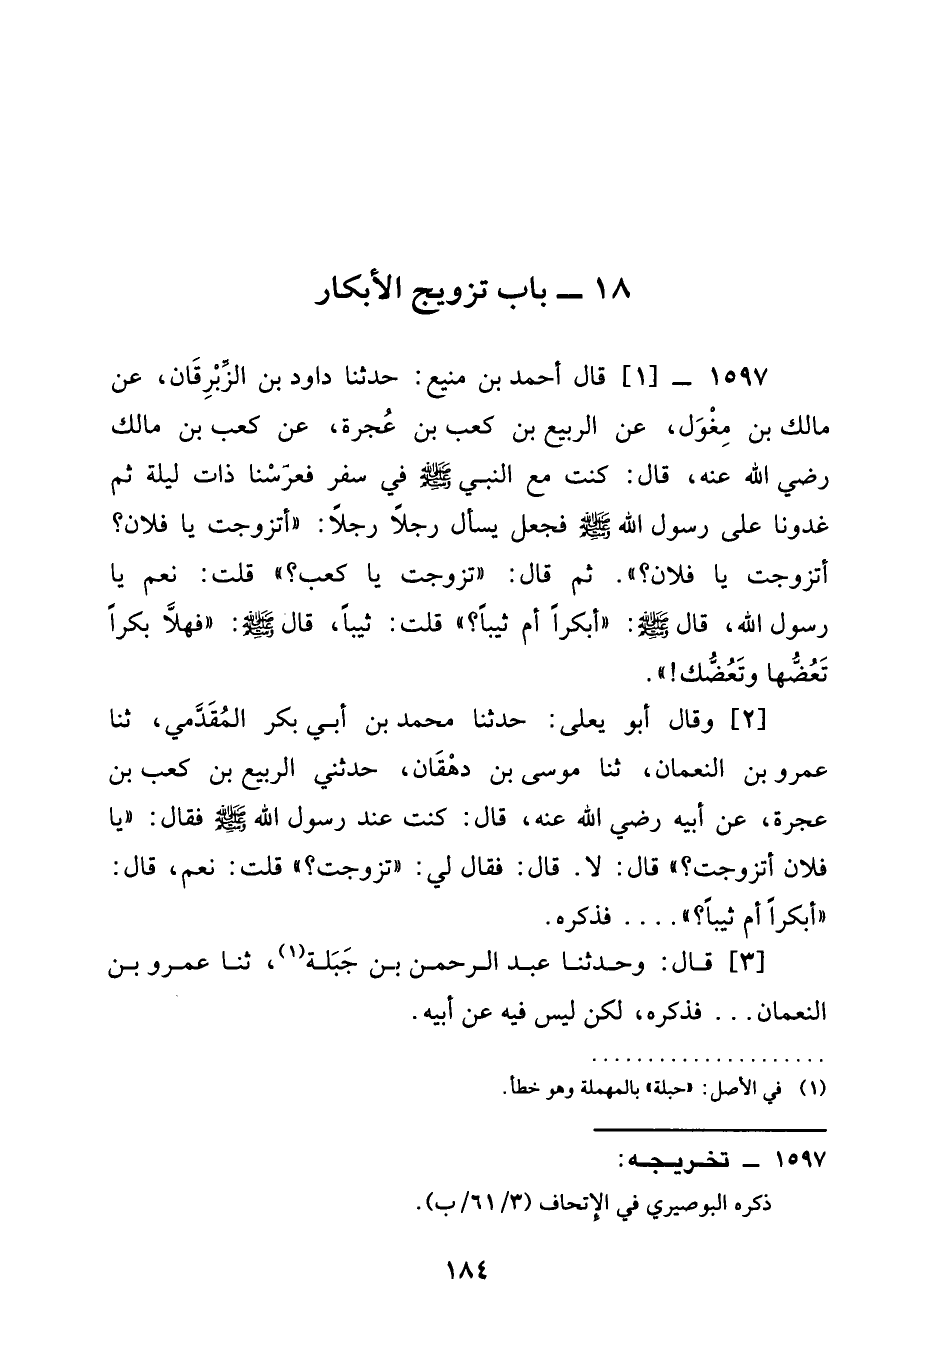 ١٨ ـ باب تزويج الأبكار
١٥٩٧ ـ [١] قال أحمد بن منيع: حدثنا داود بن الزِّبْرِقَان، عن
مالك بن مِغْوَل، عن الربيع بن كعب بن عُجرة، عن كعب بن مالك
رضي الله عنه، قال: كنت مع النبي ﷺ في سفر فعرّسْنا ذات ليلة ثم
غدونا على رسول الله ﷺ فجعل يسأل رجلاً رجلاً: «أتزوجت يا فلان؟
أتزوجت يا فلان؟». ثم قال: «تزوجت يا كعب؟» قلت: نعم يا
رسول الله، قال ﷺ: «أبكراً أم ثيباً؟» قلت: ثيباً، قال ﷺ: «فهلاَّ بكراً
تَعُضُّها وتَعُضُّك!».
[٢] وقال أبو يعلى: حدثنا محمد بن أبي بكر المُقَدَّمي، ثنا
عمرو بن النعمان، ثنا موسى بن دهْقَان، حدثني الربيع بن كعب بن
عجرة، عن أبيه رضي الله عنه، قال: كنت عند رسول الله ﷺ فقال: «يا
فلان أتزوجت؟» قال: لا. قال: فقال لي: «تزوجت؟» قلت: نعم، قال:
«أبكراً أم ثيباً؟».... فذكره.
[٣] قال: وحدثنا عبد الرحمن بن جَبَلة(١)، ثنا عمرو بن
النعمان... فذكره، لكن ليس فيه عن أبيه.
(١) في الأصل: «حبلة» بالمهملة وهو خطأ.
١٥٩٧ ـ تخريجه:
ذكره البوصيري في الإتحاف (٣/ ٦١/ ب).
١٨٤